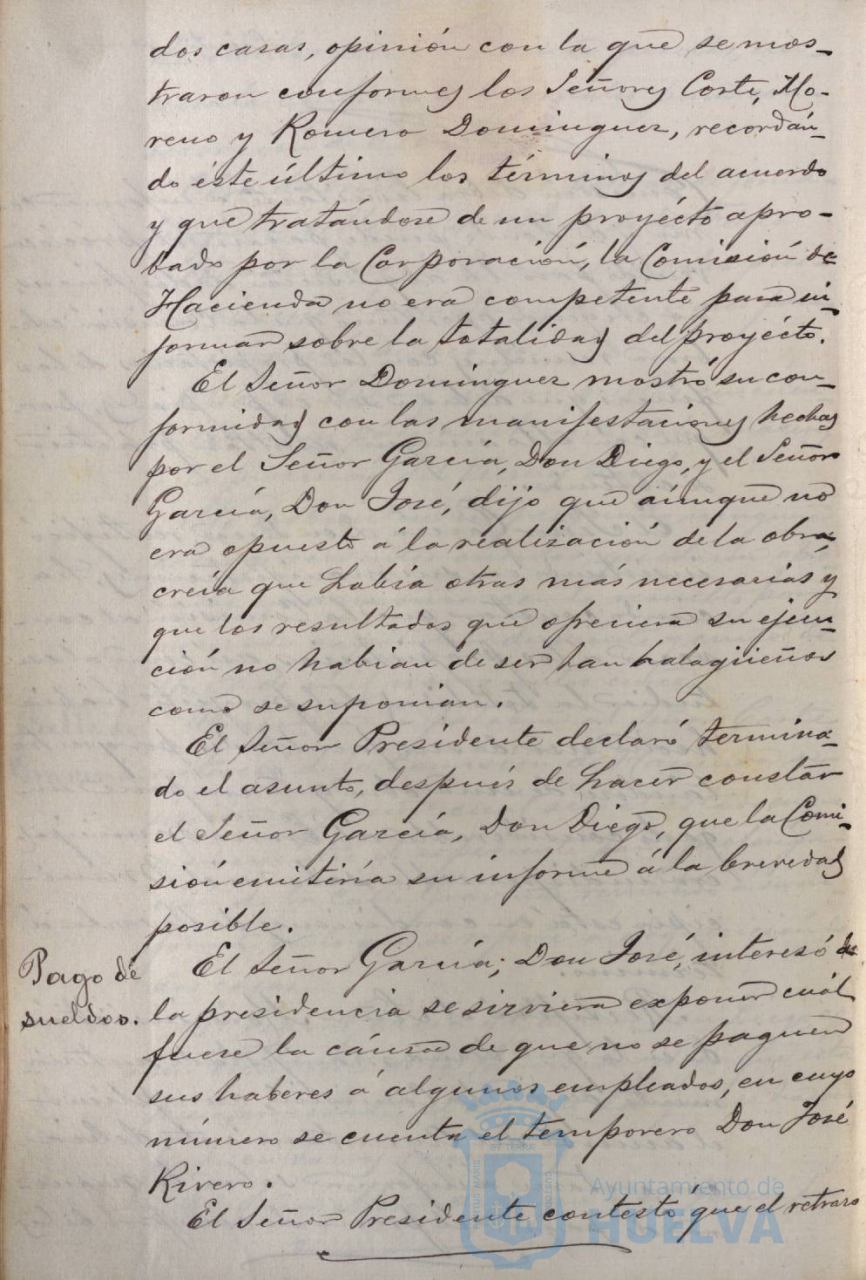 dos casas, opinión con la que se mos-
traron conformes los Señores Corte, Mo-
reno y Romero Dominguez, recordán-
do éste último los términos del acuerdo
y que tratándose de un proyécto apro-
bado por la Corporación, la Comisión de
Hacienda no era competente para in-
formar sobre la totalidad del proyécto.
El Señor Dominguez mostró su con-
formidad con las manifestaciones hechas
por el Señor García, Don Diego, y el Señor
García, Don José, dijo que aúnque no
era opuesto á la realización de la obra,
creía que había otras más necesarias y
que los resultados que ofreciera su ejecu-
ción no habian de ser tan halagüeños
como se suponian.
El Señor Presidente declaró termina-
do el asunto, después de hacer constar
el Señor García, Don Diego, que la Comi-
sión emitiría su informe á la brevedad
posible.
Pago de
sueldos.
El Señor García, Don José, interesó de
la presidencia se sirviera exponer cuál
fuese la cáusa de que no se paguen
sus haberes á algunos empleados, en cuyo
número se cuenta el temporero Don José
Rivero.
El Señor Presidente contestó que el retraso
Ayuntamiento de
HUELVA